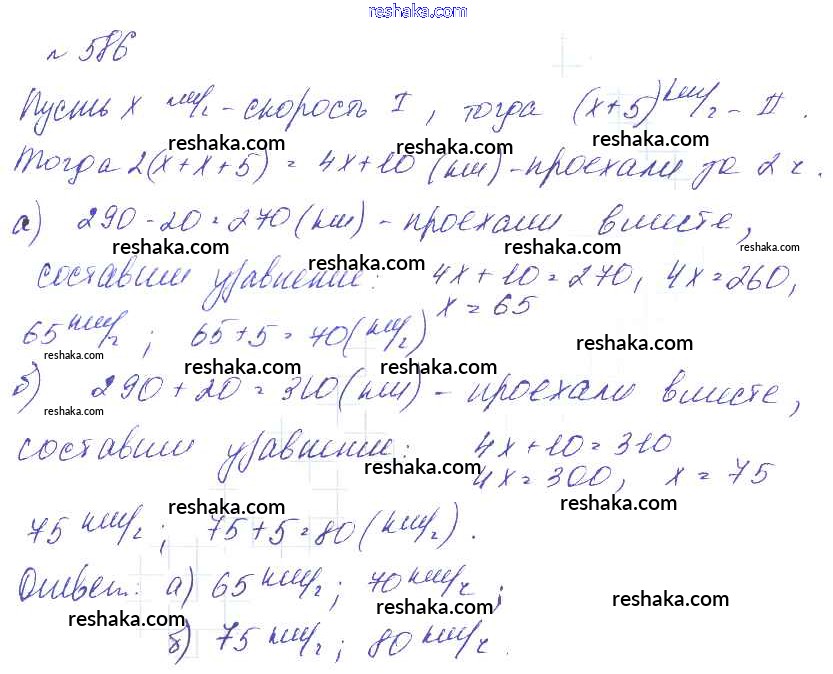 reshaka.com
№ 586
Пусть x км/ч - скорость I, тогда (x+5) км/ч - II.
reshaka.com reshaka.com reshaka.com
Тогда 2(x+x+5) = 4x+10 (км) - проехали за 2 ч.
а) 290-20=270 (км) - проехали вместе,
reshaka.com reshaka.com reshaka.com reshaka.com
составим уравнение: 4x+10=270, 4x=260,
x=65
65 км/ч; 65+5=70 (км/ч)
reshaka.com reshaka.com reshaka.com reshaka.com
б) 290+20=310 (км) - проехали вместе,
reshaka.com
составим уравнение: 4x+10=310
4x=300, x=75
reshaka.com reshaka.com reshaka.com
75 км/ч; 75+5=80 (км/ч).
Ответ: а) 65 км/ч; 70 км/ч;
reshaka.com reshaka.com reshaka.com
б) 75 км/ч; 80 км/ч.